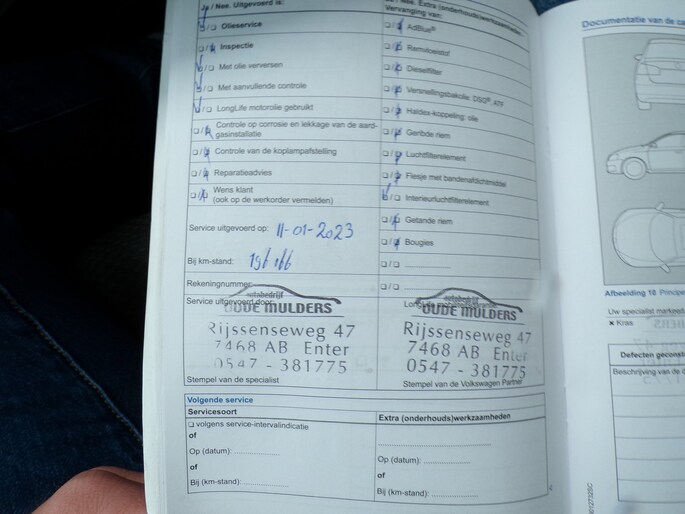 Ja / Nee. Uitgevoerd is:
☑/☐ Olieservice
☐/☑ Inspectie
☑/☐ Met olie verversen
☑/☐ Met aanvullende controle
☑/☐ LongLife motorolie gebruikt
☐/☑ Controle op corrosie en lekkage van de aard-
gasinstallatie
☐/☑ Controle van de koplampafstelling
☐/☑ Reparatieadvies
☐/☑ Wens klant
(ook op de werkorder vermelden)
Service uitgevoerd op: 11-01-2023
Bij km-stand:
Rekeningnummer:
Service uitgevoerd door:
autobedrijf
OUDE MULDERS
Rijssenseweg 47
7468 AB Enter
0547 - 381775
Stempel van de specialist
Ja / Nee. Extra (onderhouds)werkzaamheden.
Vervanging van:
☐/☑ AdBlue®
☐/☑ Remvloeistof
☐/☑ Dieselfilter
☐/☑ Versnellingsbakolie: DSG®, ATF
☐/☑ Haldex-koppeling: olie
☐/☑ Geribde riem
☐/☑ Luchtfilterelement
☐/☑ Flesje met bandenafdichtmiddel
☑/☐ Interieurluchtfilterelement
☐/☑ Getande riem
☐/☑ Bougies
☐/☐ ....................
☐/☐
autobedrijf
OUDE MULDERS
Rijssenseweg 47
7468 AB Enter
0547 - 381775
Stempel van de Volkswagen Partner
Volgende service
Servicesoort
☐ volgens service-intervalindicatie
of
Op (datum): ....................
of
Bij (km-stand): ....................
Extra (onderhouds)werkzaamheden
....................
Op (datum): ....................
of
Bij (km-stand): ....................
Documentatie van de ca
Afbeelding 10 Principe
Uw specialist markeert
× Kras
Defecten geconst
Beschrijving van de d